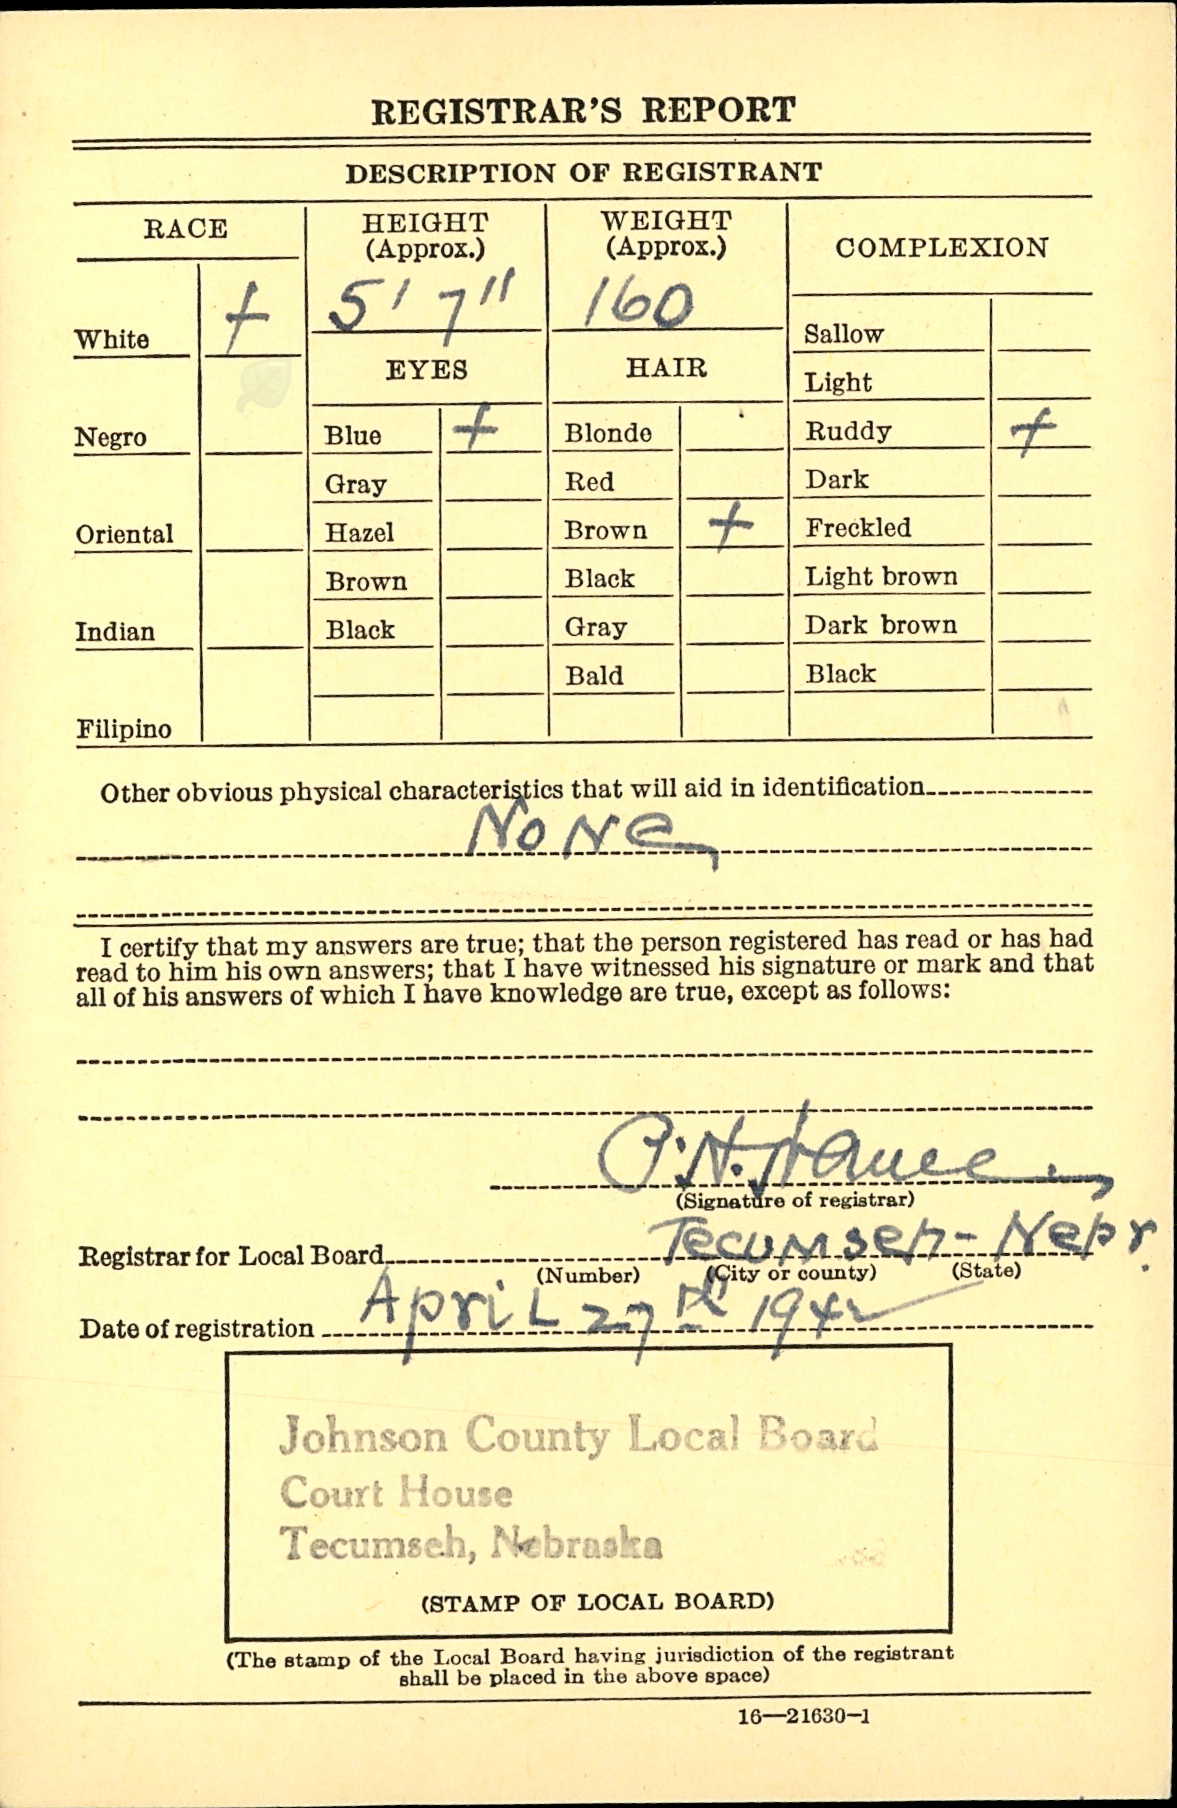 REGISTRAR'S REPORT
DESCRIPTION OF REGISTRANT
RACE
HEIGHT (Approx.)
WEIGHT (Approx.)
COMPLEXION
White +
5' 7"
160
Sallow
EYES
HAIR
Light
Negro
Blue +
Blonde
Ruddy +
Gray
Red
Dark
Oriental
Hazel
Brown +
Freckled
Brown
Black
Light brown
Indian
Black
Gray
Dark brown
Bald
Black
Filipino
Other obvious physical characteristics that will aid in identification
None
I certify that my answers are true; that the person registered has read or has had
read to him his own answers; that I have witnessed his signature or mark and that
all of his answers of which I have knowledge are true, except as follows:
(Signature of registrar)
Registrar for Local Board Tecumseh - Nebr.
(Number) (City or county) (State)
Date of registration April 27th 1942
Johnson County Local Board
Court House
Tecumseh, Nebraska
(STAMP OF LOCAL BOARD)
(The stamp of the Local Board having jurisdiction of the registrant
shall be placed in the above space)
16—21630-1